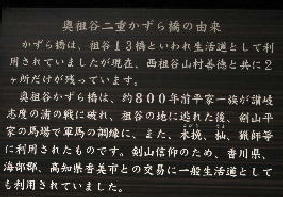 奥祖谷二重かずら橋の由来
かずら橋は、祖谷13橋といわれ生活道として利
用されていましたが現在、西祖谷山村善徳と共に2
ヶ所だけが残っています。
奥祖谷かずら橋は、約800年前平家一族が讃岐
志度の浦の戦に破れ、祖谷の地に逃れた後、剣山平
家の馬場で軍馬の訓練に、また、木挽、杣、猟師等
に利用されたものです。剣山信仰のため、香川県、
海部郡、高知県香美市との交易に一般生活道として
も利用されていました。